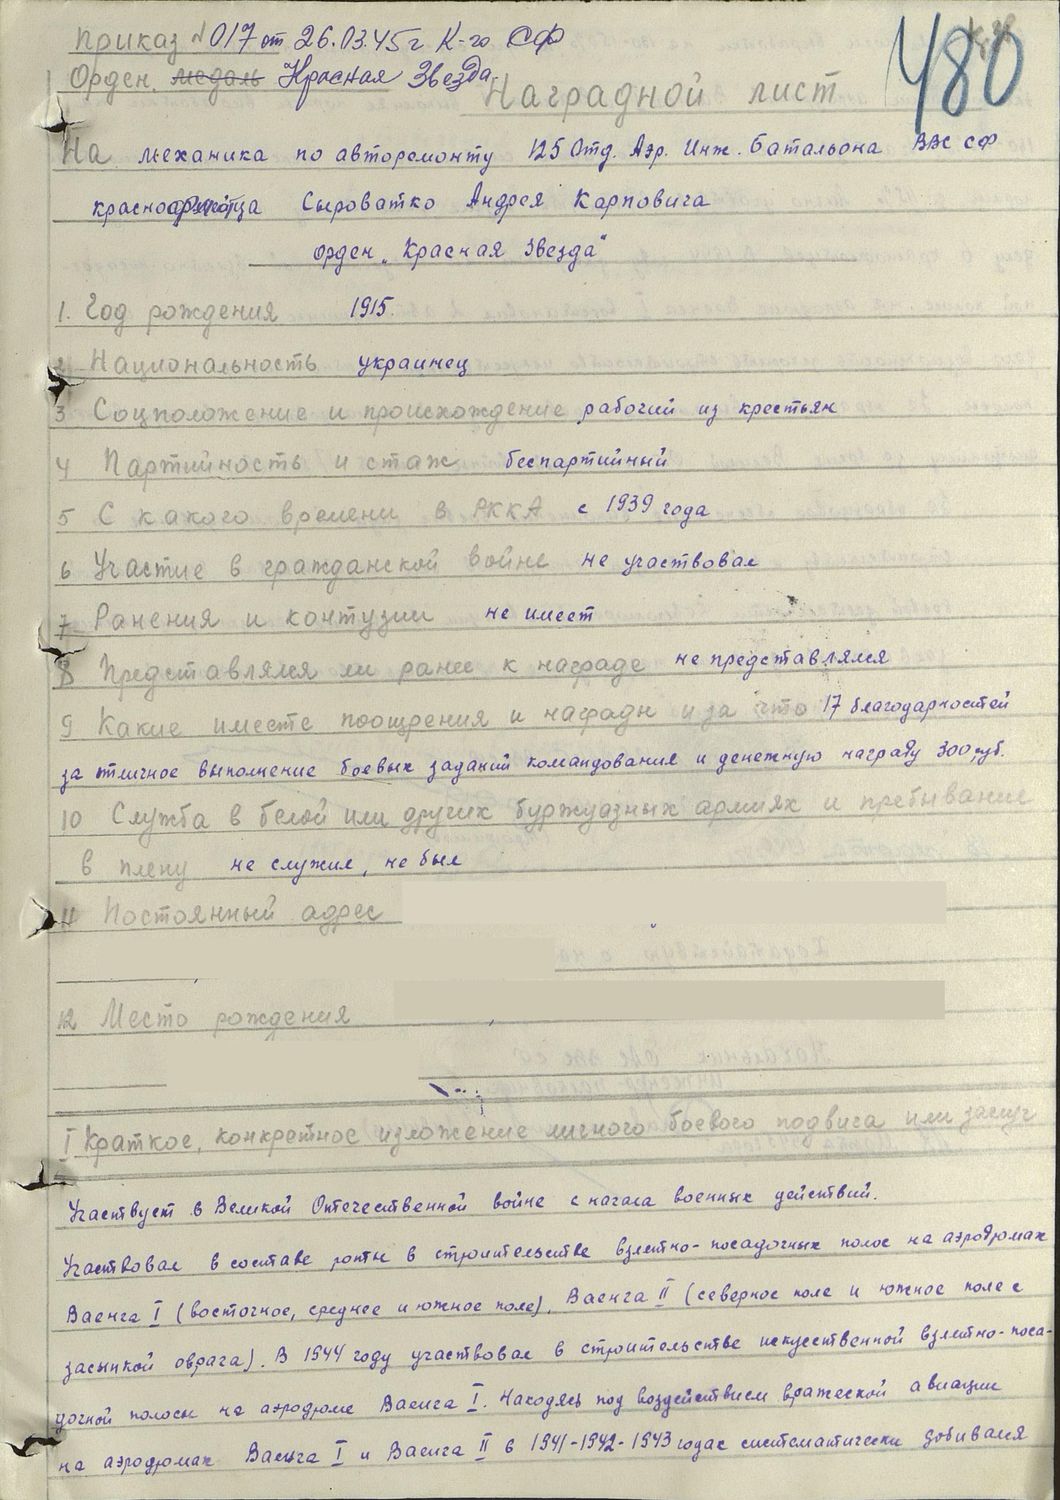 Приказ №017 от 26.03.45г К-го СФ
480
Орден медаль Красная Звезда
Наградной лист
На механика по авторемонту 125 Отд. Аэр. Инж. батальона ВВС СФ
красноармейца Сыроватко Андрея Карповича
орден „Красная Звезда"
1. Год рождения 1915.
2 Национальность украинец
3 Соцположение и происхождение рабочий из крестьян
4 Партийность и стаж беспартийный
5 С какого времени в РККА с 1939 года
6 Участие в гражданской войне не участвовал
7 Ранения и контузии не имеет
8 Представлялся ли ранее к награде не представлялся
9 Какие имеете поощрения и награды и за что 17 благодарностей
за отличное выполнение боевых заданий командования и денежную награду 300 руб.
10 Служба в белой или других буржуазных армиях и пребывание
в плену не служил, не был
11 Постоянный адрес
12 Место рождения
I Краткое, конкретное изложение личного боевого подвига или заслуг
Участвует в Великой Отечественной войне с начала военных действий.
Участвовал в составе роты в строительстве взлетно-посадочных полос на аэродромах
Ваенга I (восточное, среднее и южное поле), Ваенга II (северное поле и южное поле с
засыпкой оврага). В 1944 году участвовал в строительстве искусственной взлетно-поса-
дочной полосы на аэродроме Ваенга I. Находясь под воздействием вражеской авиации
на аэродромах Ваенга I и Ваенга II в 1941-1942-1943 годах систематически добивался